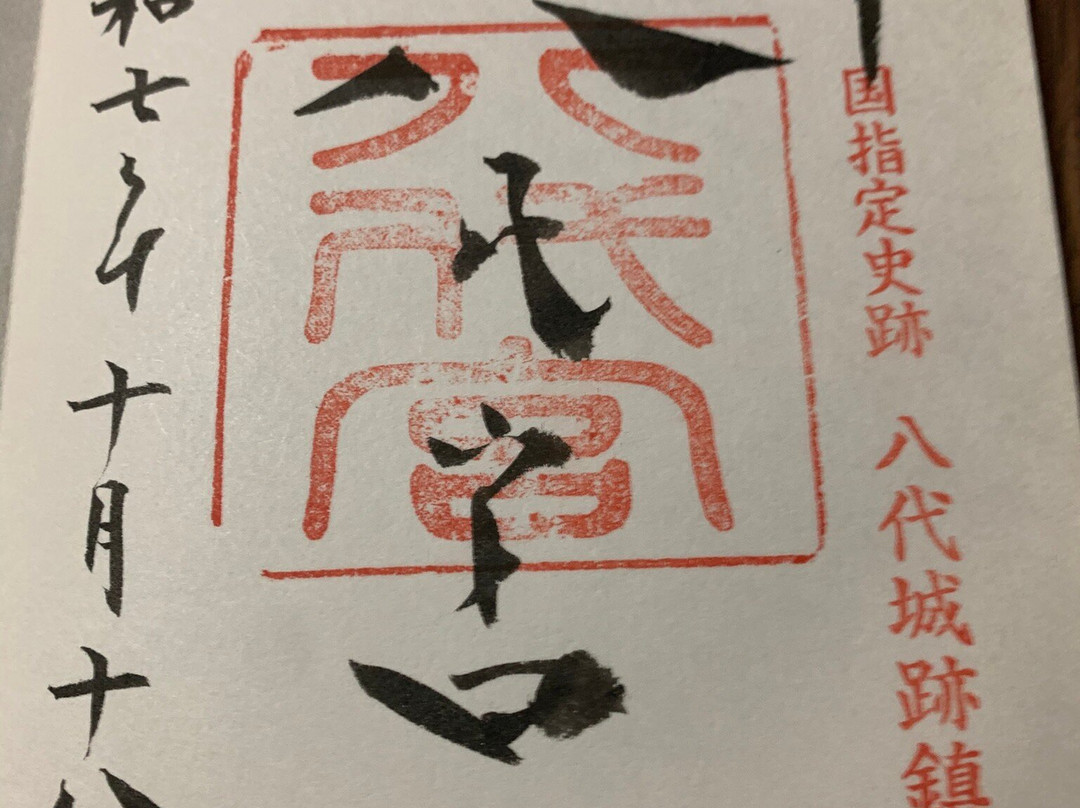 国指定史跡 八代城跡鎮
八代宮
八代宮
和七年十月十八